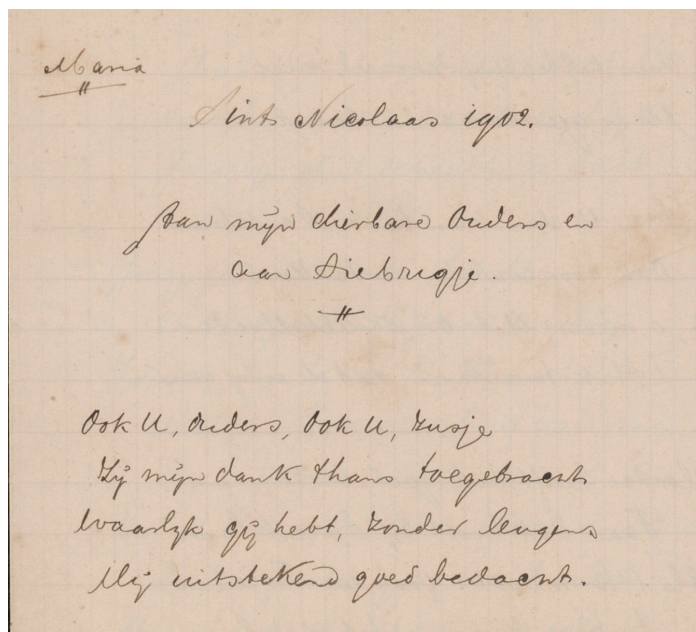 Maria
Sint Nicolaas 1902.
Aan mijn dierbare Ouders en
aan Siebrigje.
Ook U, ouders, Ook U, zusje
Zij mijn dank thans toegebracht
Waarlijk gij hebt, zonder leugens
Mij uitstekend goed bedacht.